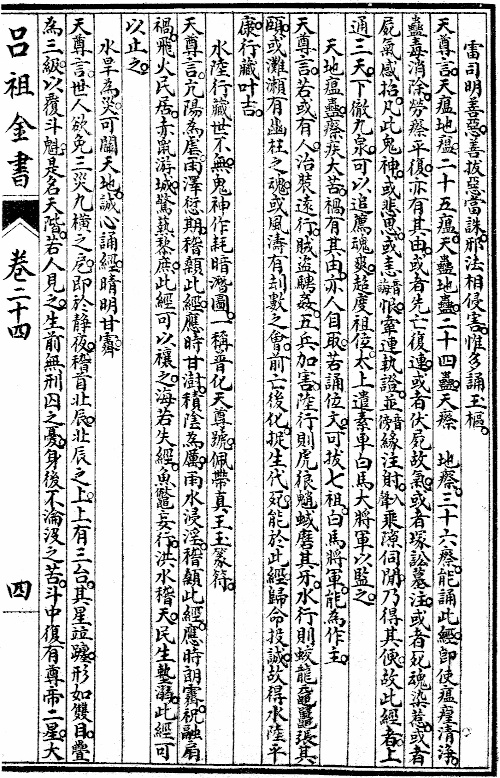 雷司明善惡善拔惡當誅邪法相侵害惟多誦玉樞
天尊言天瘟地瘟二十五瘟天蠱地蠱二十四蠱天瘵地瘵三十六瘵能誦此經卽使瘟㾮清淨
蠱毒消除勞瘵平復亦有其由或者先亡復連或者伏屍故氣或者塚訟墓注或者死魂染惹或者
屍氣感招凡此鬼神或悲思或恚恨牽連執證並緣注射乘隙伺間乃得其便故此經者上
通三天下徹九泉可以追薦魂爽超度祖位太上遣素車白馬大將軍以監之
天地瘟蠱瘵疾大苦禍有其由亦人自取苦誦位文可拔七祖白馬將軍能為作主
天尊言若或有人治裝遠行賊盜騁姦五兵加害陸行則虎狼魈蜮磨其牙水行則蛟龍黿鼉張其
頤或灘瀨有幽枉之魂或風濤有刦數之會前亡後化捉生代死能於此經歸命投誠故得水陸平
康行藏叶吉
水陸行藏世不無鬼神作耗暗潛圖一稱普化天尊號佩帶真王玉篆符
天尊言亢陽為虐雨澤愆期稽顙此經應時甘澍積陰為厲雨水浸淫稽顙此經應時朗霽祝融扇
禍飛火民居赤鼠游城驚爇黎庶此經可以禳之海若失經魚鱉妄行洪水稽天民生墊溺此經可
以止之
水旱為災可關天地誠心誦經晴明甘霽
天尊言世人欲免三災九橫之厄即於靜夜稽首北辰北辰之上上有三台其星竝躔形如雙目疊
為三級以覆斗魁是名天階若人見之生前無刑囚之憂身後不淪沒之苦斗中復有尊帝二星大
呂祖金書
卷二十四
四